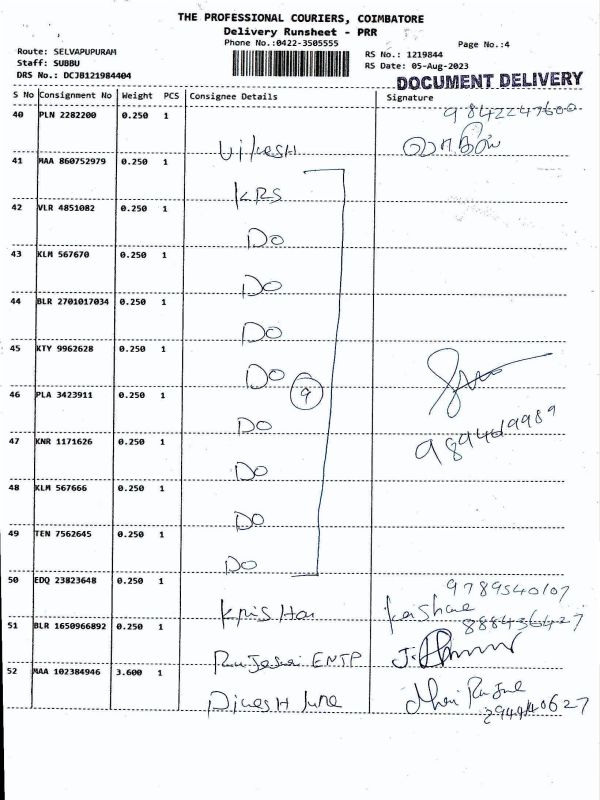 THE PROFESSIONAL COURIERS, COIMBATORE
Delivery Runsheet - PRR
Phone No.:0422-3505555
Page No.:4
Route: SELVAPUPURAM
Staff: SUBBU
DRS No.: DCJB121984404
RS No.: 1219844
RS Date: 05-Aug-2023
DOCUMENT DELIVERY
S No Consignment No Weight PCS Consignee Details Signature
40 PLN 2282200 0.250 1 9842247600
Vikesh
41 MAA 860752979 0.250 1
KRS
42 VLR 4851082 0.250 1
DO
43 KLM 567670 0.250 1
DO
44 BLR 2701017034 0.250 1
DO
45 KTY 9962628 0.250 1
DO
9
46 PLA 3423911 0.250 1
DO
47 KNR 1171626 0.250 1
DO
48 KLM 567666 0.250 1
DO
49 TEN 7562645 0.250 1
DO
50 EDQ 23823648 0.250 1 9789540107
51 BLR 1650966892 0.250 1
ENTP
52 MAA 102384946 3.600 1
Dinesh